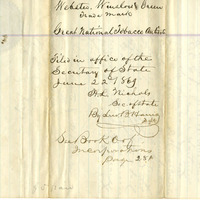 Webster, Winslow & Green
Trade Mark
Great National Tobacco
Filed in office of the
Secretary of State
June 22nd 1869
H. L. Nichols
Sec of State
By
See Book C of
Incorporations
Page 284